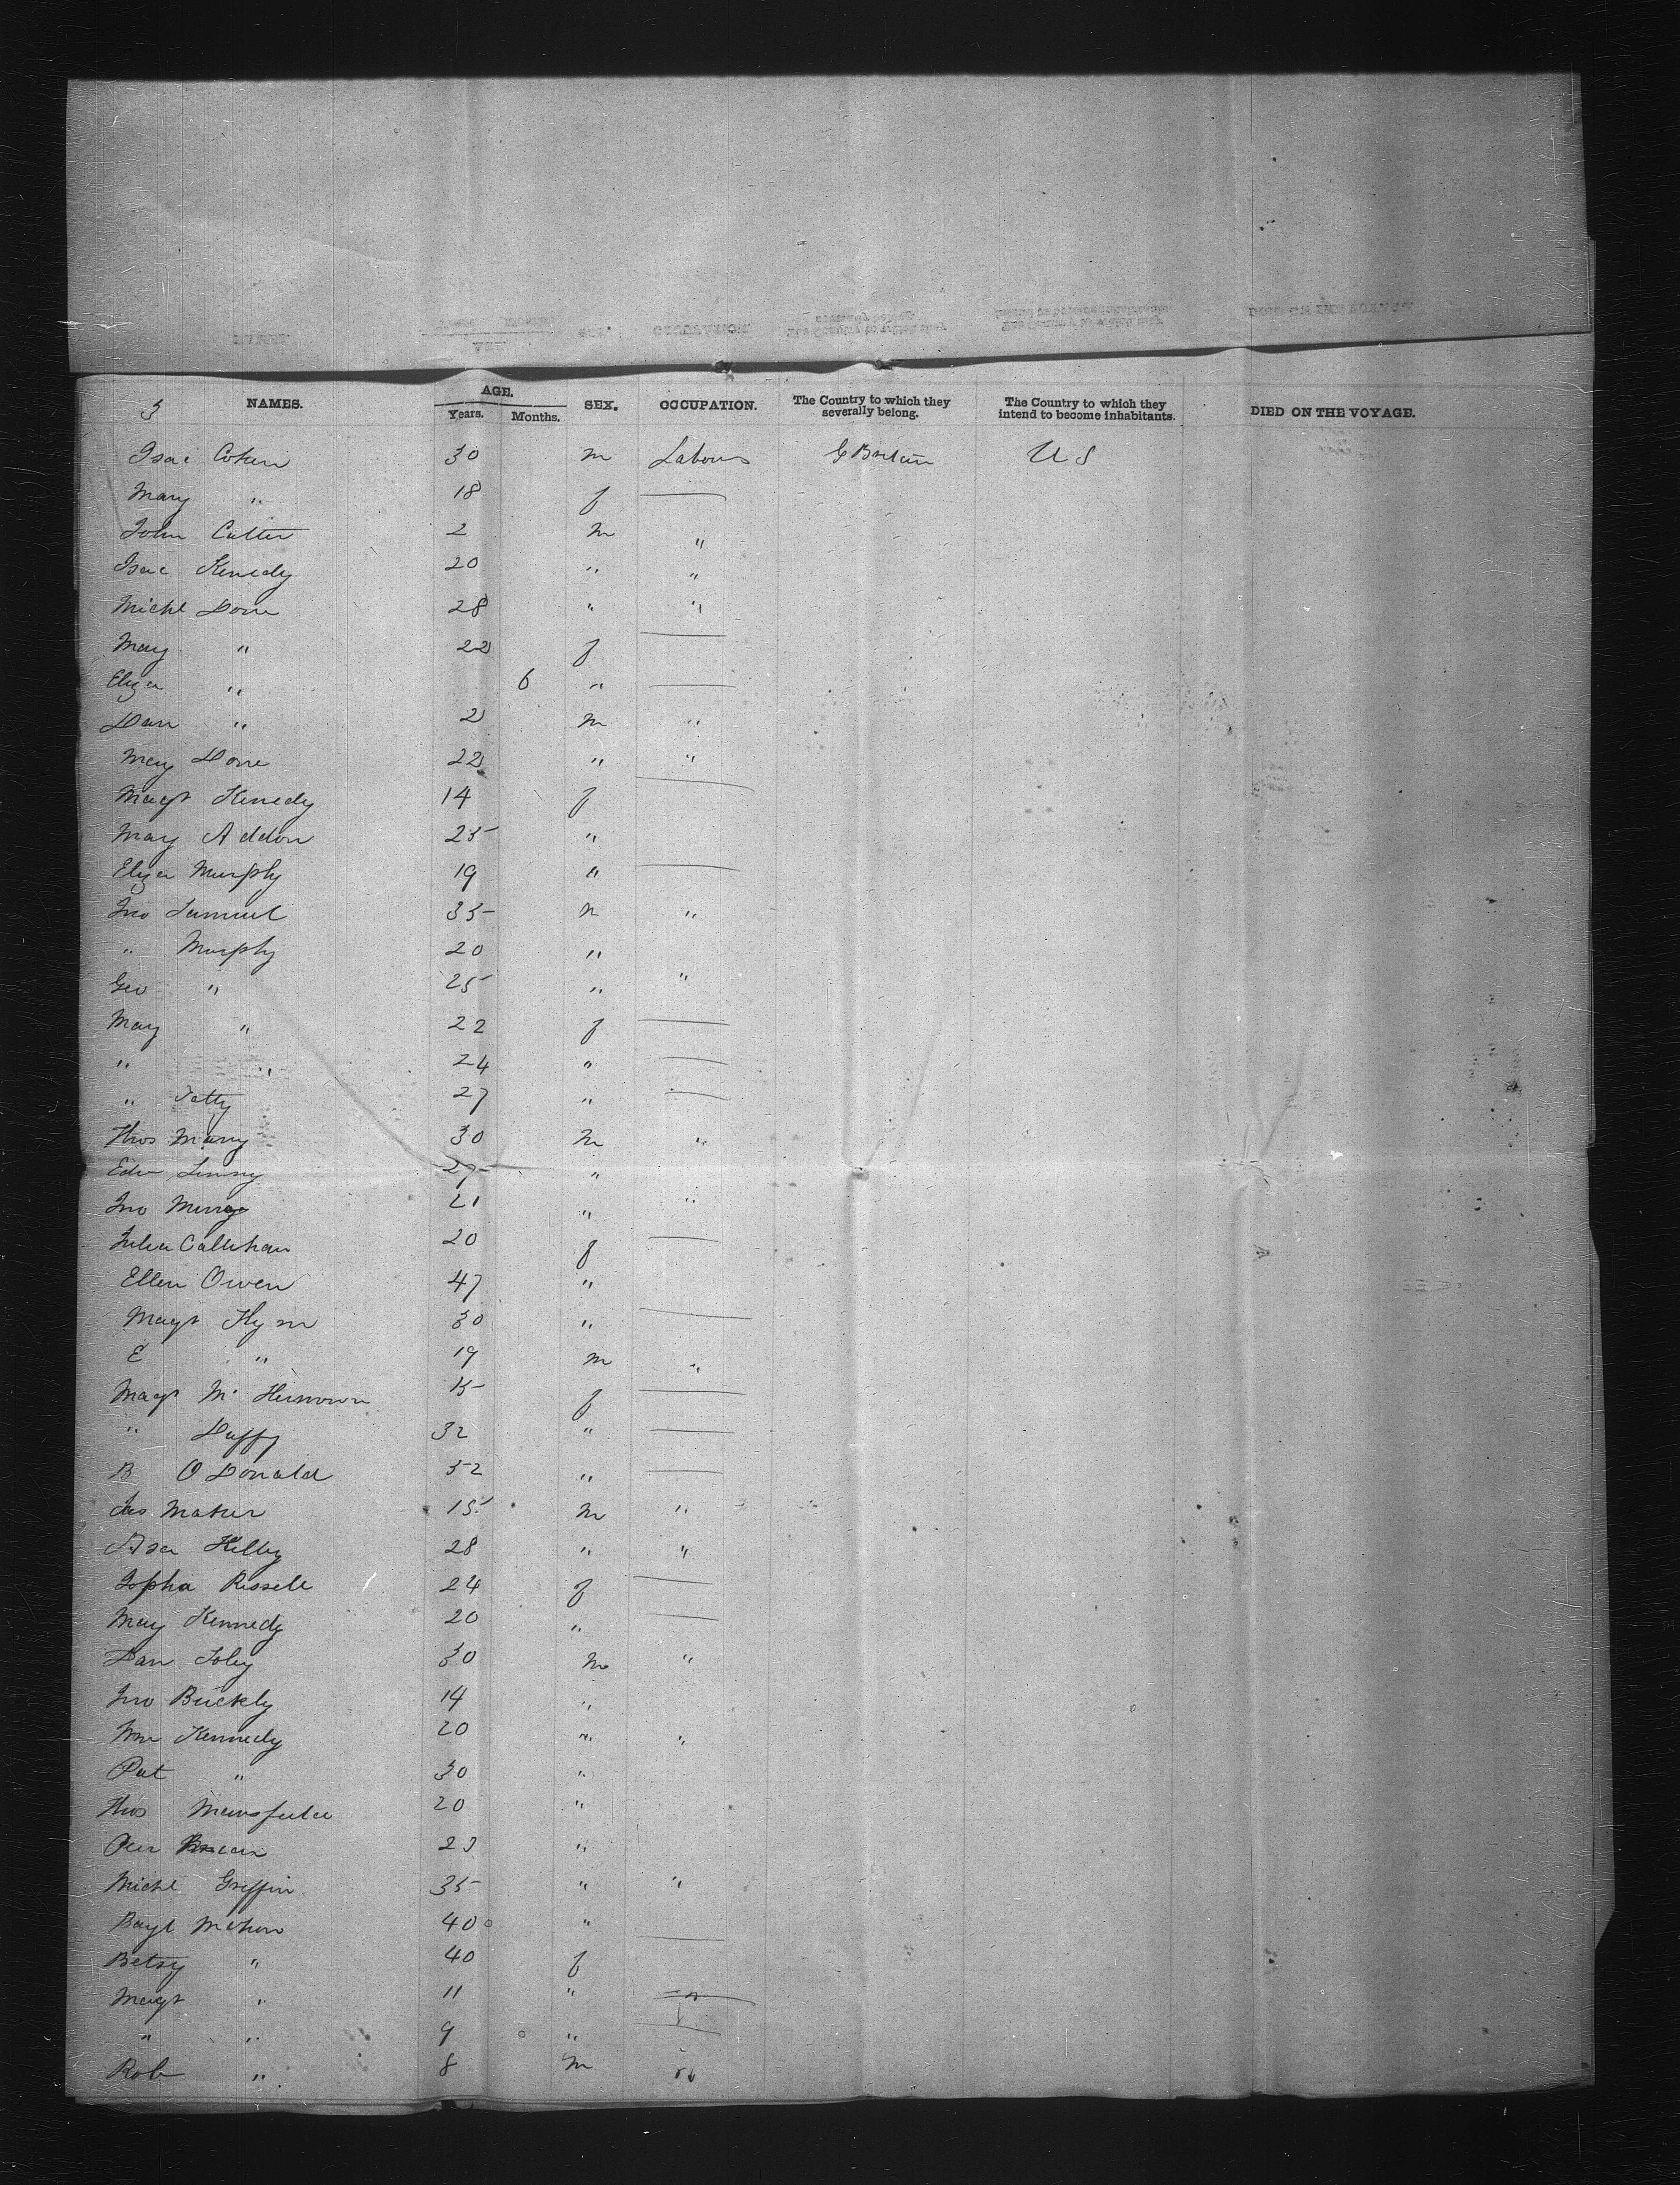 3 NAMES. AGE. Years. Months. SEX. OCCUPATION. The Country to which they severally belong. The Country to which they intend to become inhabitants. DIED ON THE VOYAGE.
Isac Cohen 30 m Labour G Britain U S
Mary " 18 f —
John Cutter 2 m "
Isac Kenedy 20 " "
Michl Done 28 " "
Mary " 22 f —
Eliza " 6 " —
Dan " 2 m "
May Done 22 " "
Magt Kenedy 14 f —
Mary Addon 25 "
Eliza Murphy 19 " —
Jno Samuel 35 m "
" Murphy 20 "
Geo " 25 " "
Mary " 22 f —
" " 24 " —
" 27 " —
Thos Many 30 m "
Edw 27 "
Jno 21 " "
Julia Callihan 20 f —
Ellen Owen 47 "
Magt 30 " —
E " 19 m "
Magt Mc 15 f —
" Duffy 32 " —
B O Donald 32 " —
Jas Maher 15 m "
Asa Kelley 28 " "
Sopha Russell 24 f —
May Kennedy 20 " —
Dan Foley 30 m "
Jno Buckly 14 "
Wm Kennedy 20 " "
Pat " 30 "
Thos Mansfield 20 "
23 "
Michl Griffin 35 " "
Mahon 40 "
Betsy " 40 f —
Magt " 11 "
" " 9 " —
Rob " 8 m "